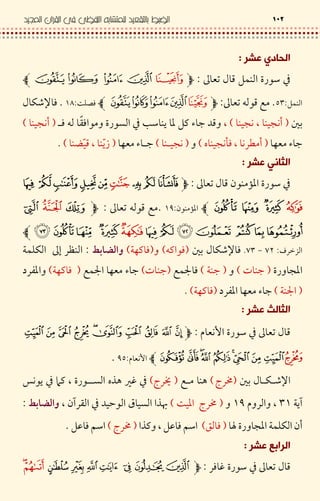 ١٠٢
الضبط بالتقعيد للمتشابه اللفظي في القرآن المجيد
الحادي عشر :
في سورة النمل قال تعالى : ﴿ وَأَنجَيْنَا الَّذِينَ ءَامَنُوا وَكَانُوا يَتَّقُونَ ﴾
النمل:٥٣. مع قوله تعالى: ﴿ وَنَجَّيْنَا الَّذِينَ ءَامَنُوا وَكَانُوا يَتَّقُونَ ﴾ فصلت:١٨ . فالإشكال
بين ( أنجينا ، نجينا ) ، وقد جاء كل لما يناسب في السورة وموافقًا له فـ ( أنجينا )
جاء معها ( أمطرنا ، فأنجيناه ) و ( نجينـا ) جـاء معها ( زيّنا ، وقيّضنا ) .
الثاني عشر :
في سورة المؤمنون قال تعالى : ﴿ فَأَنشَأْنَا لَكُم بِهِ جَنَّاتٍ مِّن نَّخِيلٍ وَأَعْنَابٍ لَّكُمْ فِيهَا
فَوَاكِهُ كَثِيرَةٌ وَمِنْهَا تَأْكُلُونَ ﴾ المؤمنون:١٩ .مع قوله تعالى : ﴿ وَتِلْكَ الْجَنَّةُ الَّتِي
أُورِثْتُمُوهَا بِمَا كُنتُمْ تَعْمَلُونَ ﴿٧٢﴾ لَكُمْ فِيهَا فَاكِهَةٌ كَثِيرَةٌ مِّنْهَا تَأْكُلُونَ ﴿٧٣﴾ ﴾
الزخرف: ٧٢ - ٧٣. فالإشكال بين (فواكه) و(فاكهة) والضابط : النظر إلى الكلمة
المجاورة ( جنات ) و ( جنة ) فالجمع (جنات) جاء معها الجمع ( فاكهة) والمفرد
( الجنة ) جاء معها المفرد (فاكهة) .
الثالث عشر :
قال تعالى في سورة الأنعام : ﴿ إِنَّ اللَّهَ فَالِقُ الْحَبِّ وَالنَّوَى يُخْرِجُ الْحَيَّ مِنَ الْمَيِّتِ
وَمُخْرِجُ الْمَيِّتِ مِنَ الْحَيِّ ذَلِكُمُ اللَّهُ فَأَنَّى تُؤْفَكُونَ ﴾ الأنعام:٩٥ .
الإشـكـال بين (مخرج) هنا مـع ( يخرج) في غير هذه الســورة ، كما في يونس
آية ٣١ ، والروم ١٩ و ( مخرج الميت ) بهذا السياق الوحيد في القرآن ، والضابط :
أن الكلمة المجاورة لها ( فالق) اسم فاعل ، وكذا ( مخرج ) اسم فاعل .
الرابع عشر :
قال تعالى في سورة غافر : ﴿ الَّذِينَ يُجَادِلُونَ فِي ءَايَاتِ اللَّهِ بِغَيْرِ سُلْطَانٍ أَتَاهُمْ